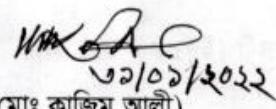 ৩১/০১/২০২২
(মোঃ কাজিম আলী)